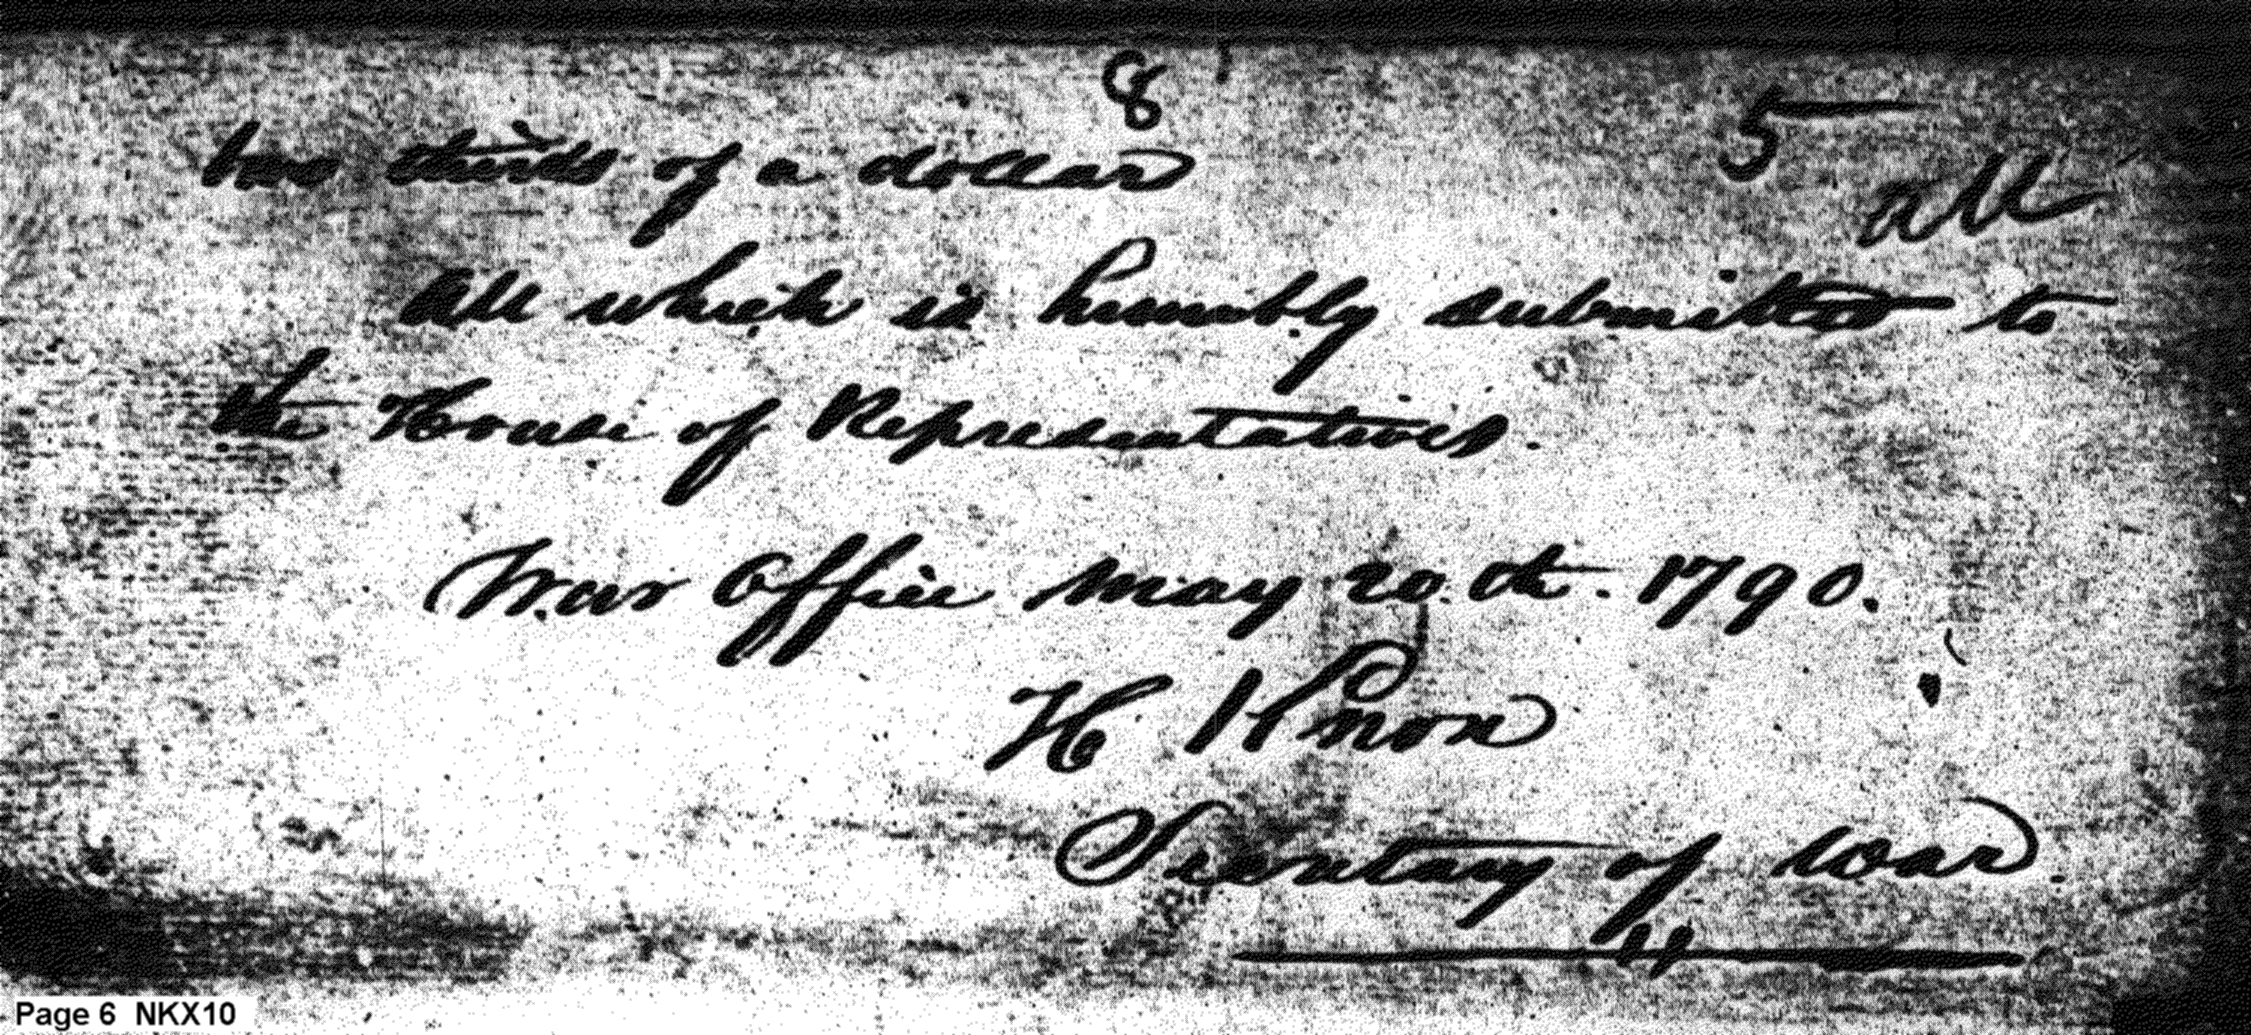 8
5
two thirds of a dollar
all
All which is humbly submitted to
the House of Representatives.
War Office May 20.th. 1790.
H Knox
Secretary of War.
Page 6 NKX10